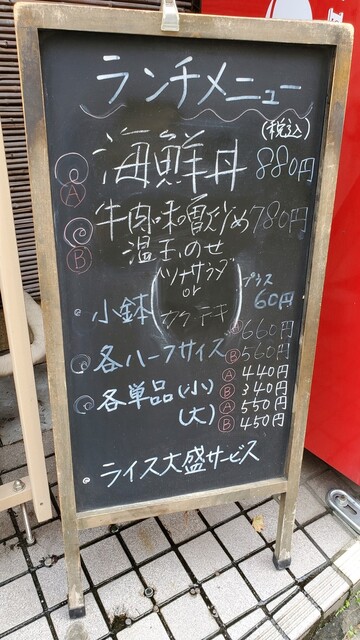 ランチメニュー
(税込)
Ⓐ 海鮮丼 880円
Ⓑ 牛肉味噌炒め 780円
温玉のせ
ツナサラダ
or
プラス
小鉢 60円
Ⓐ 660円
各ハーフサイズ Ⓑ 560円
Ⓐ 440円
各単品(小) Ⓑ 340円
Ⓐ 550円
(大) Ⓑ 450円
・ライス大盛サービス